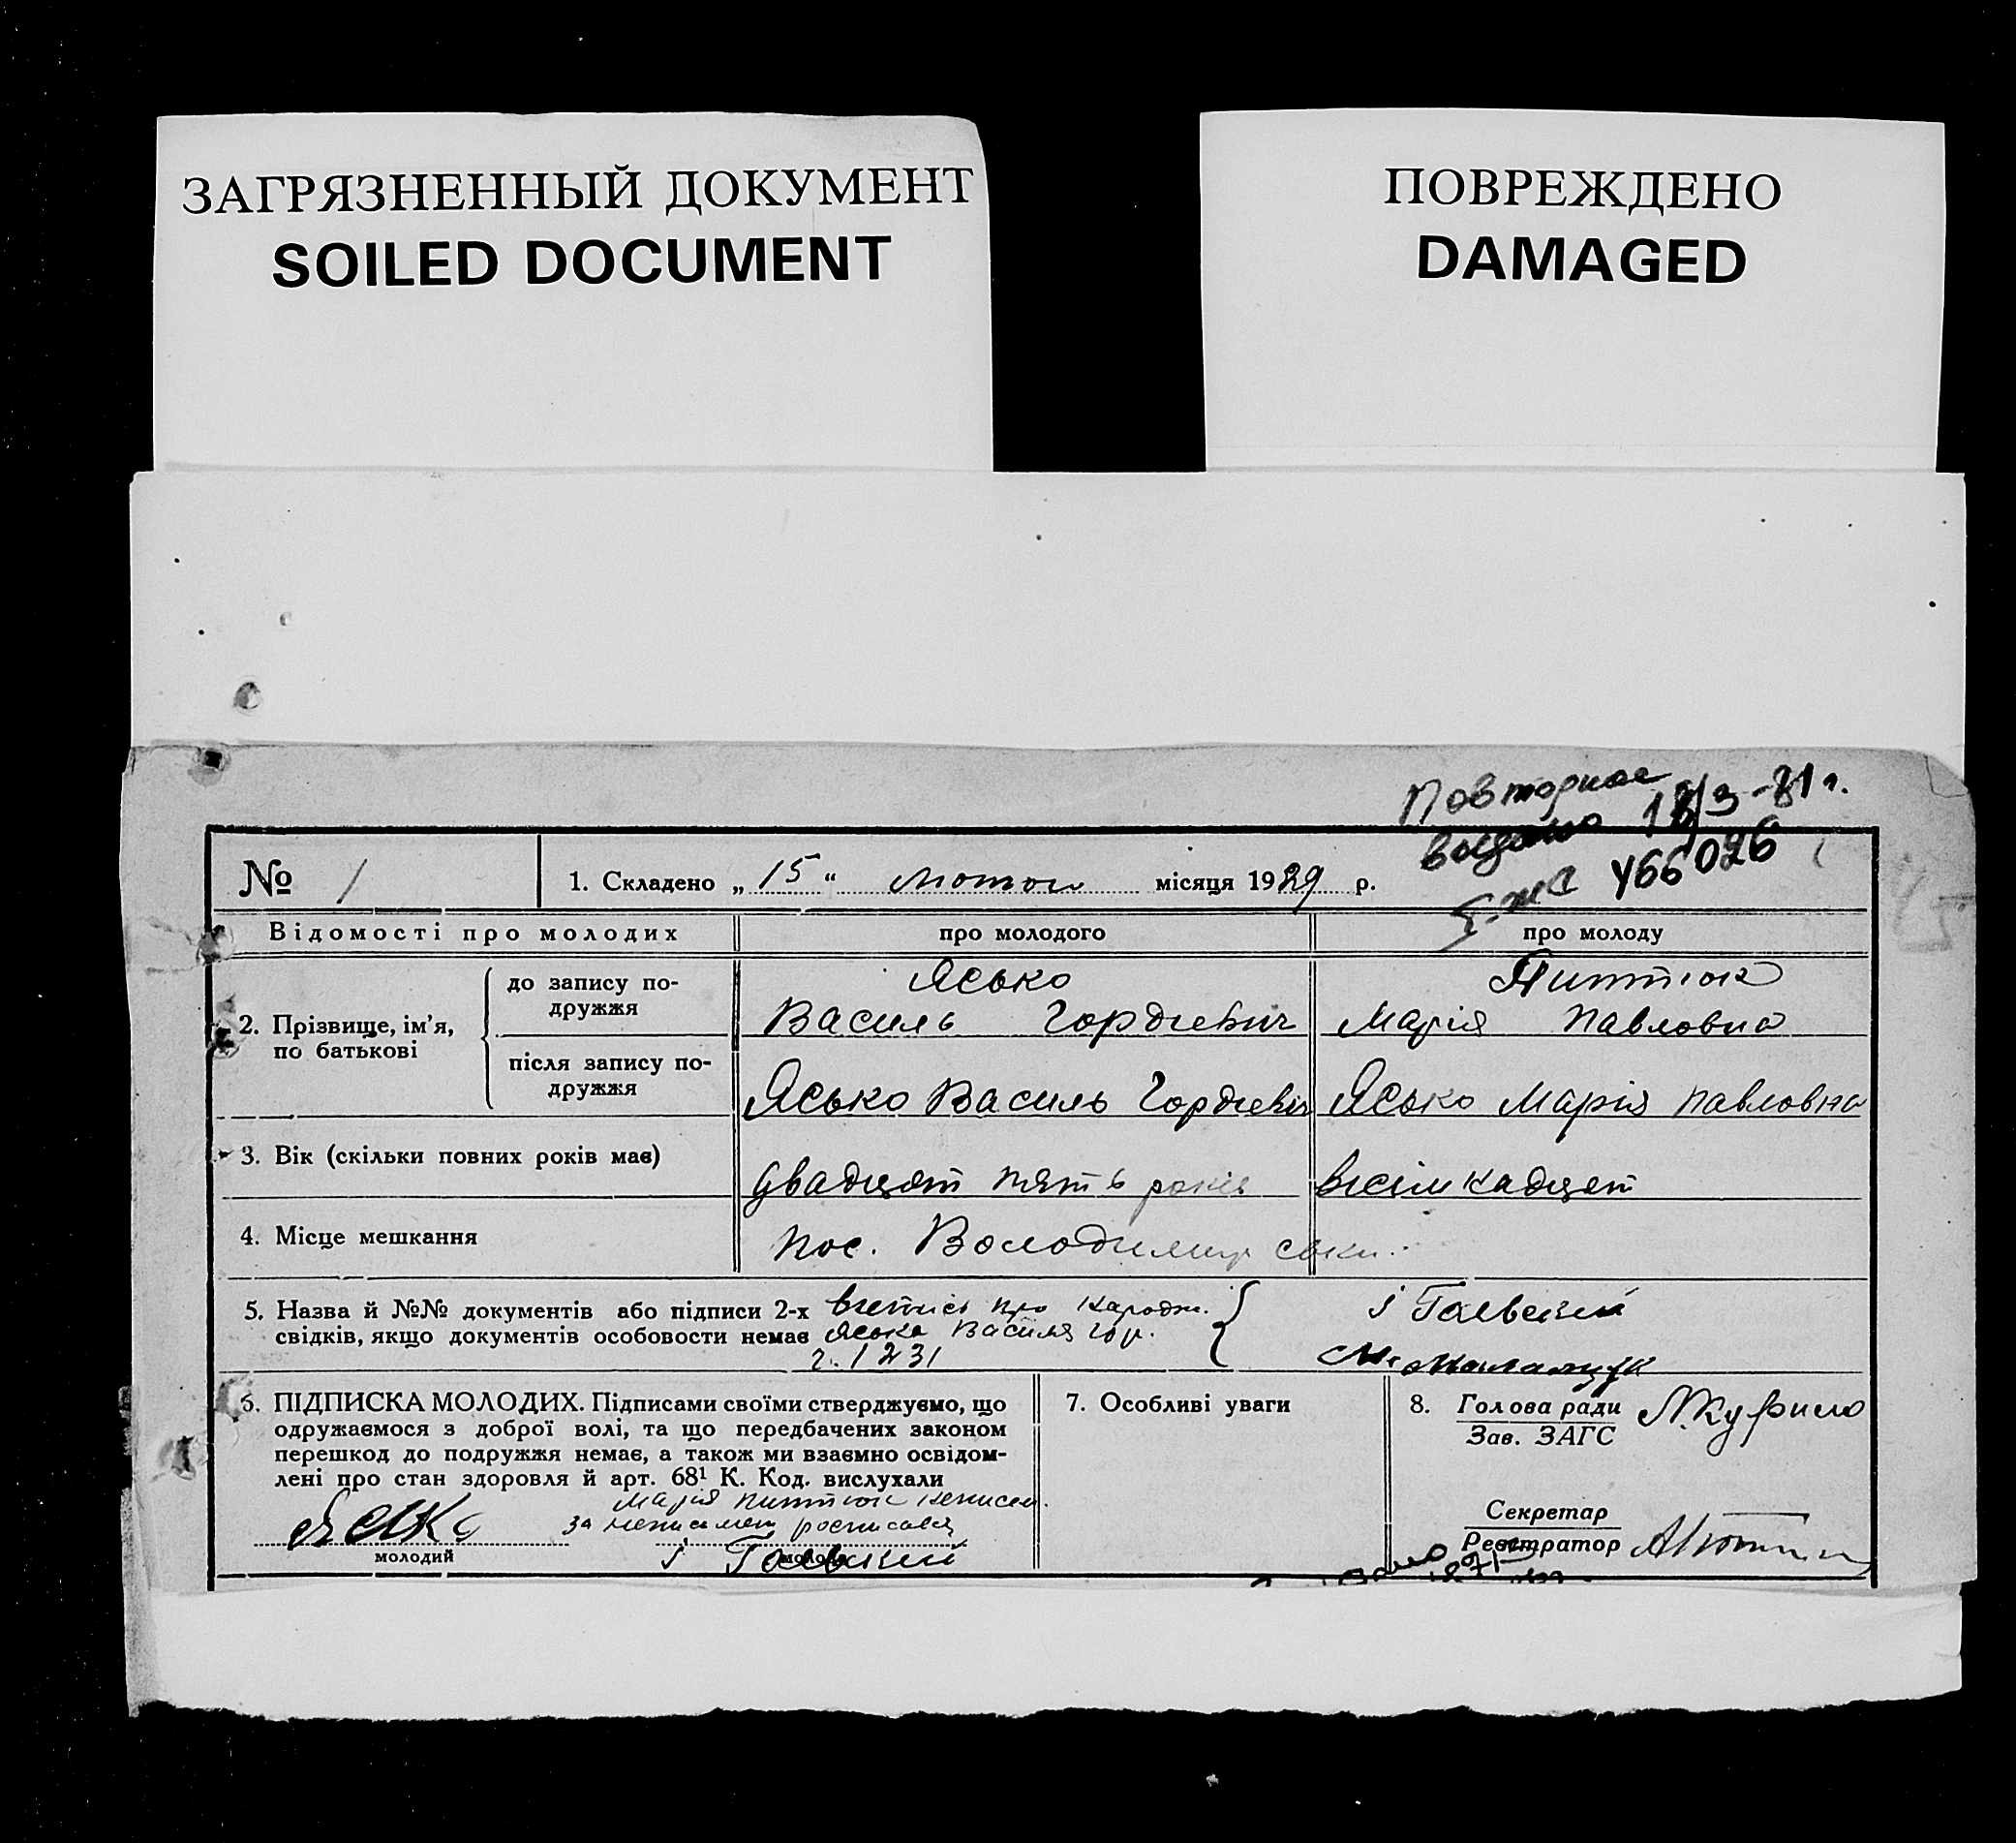 ЗАГРЯЗНЕННЫЙ ДОКУМЕНТ
SOILED DOCUMENT
ПОВРЕЖДЕНО
DAMAGED
Повторное
выдано 18/3-81 г.
УБ6026
№ 1
1. Складено „15“ лютого місяця 1929 р.
Відомості про молодих
про молодого
про молоду
2. Прізвище, ім’я, по батькові
до запису подружжя
Ясько
Василь Гордієвич
Марія Павловна
після запису подружжя
Ясько Василь Гордієвич
Ясько Марія Павловна
3. Вік (скільки повних років має)
двадцят пять років
вісімнадцят
4. Місце мешкання
пос.
5. Назва й №№ документів або підписи 2-х
свідків, якщо документів особовости немає
витпісь про народж.
Яська Василя Гор.
г. 1231
І Гаевский
6. ПІДПИСКА МОЛОДИХ. Підписами своїми стверджуємо, що
одружаємося з доброї волі, та що передбачених законом
перешкод до подружжя немає, а також ми взаємно освідом-
лені про стан здоровля й арт. 68¹ К. Код. вислухали
Марія
за росписався
молодий
І Гаевский
молода
7. Особливі уваги
8. Голова ради
Зав. ЗАГС
Секретар
Реєстратор